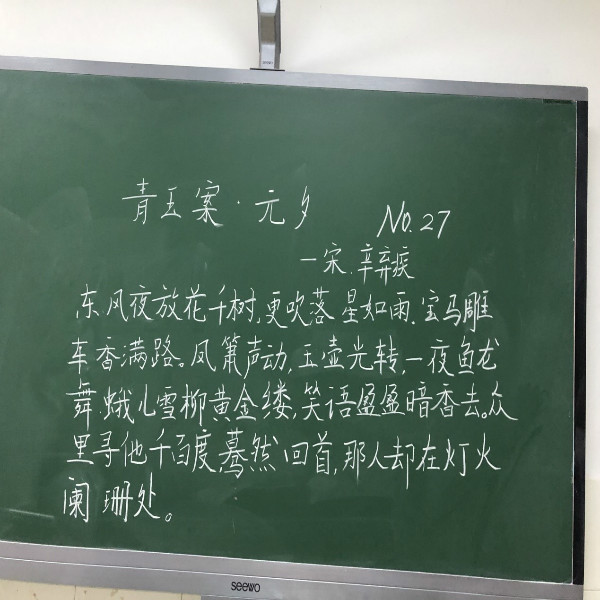 青玉案·元夕 No.27
—宋.辛弃疾
东风夜放花千树,更吹落 星如雨.宝马雕
车香满路。凤箫声动,玉壶光转,一夜鱼龙
舞.蛾儿雪柳黄金缕,笑语盈盈暗香去。众
里寻他千百度,蓦然回首,那人却在灯火
阑珊处。
seewo